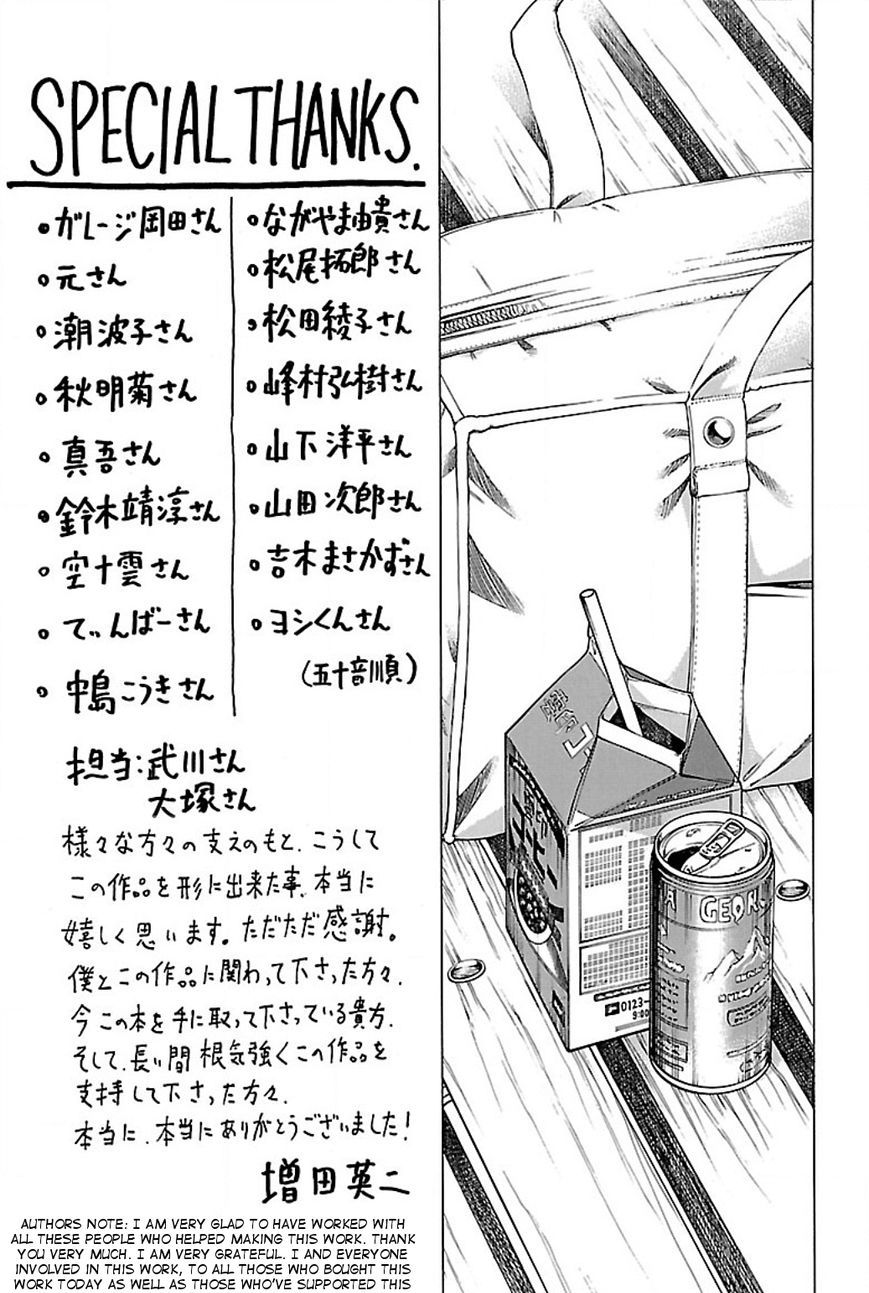 SPECIAL THANKS.
・ガレージ岡田さん
・元さん
・潮波子さん
・秋明菊さん
・真吾さん
・鈴木靖淳さん
・空十雲さん
・てぃんばーさん
・中島こうきさん
・ながやま由貴さん
・松尾拓郎さん
・松田綾子さん
・峰村弘樹さん
・山下洋平さん
・山田次郎さん
・吉木まさかずさん
・ヨシくんさん
(五十音順)
担当:武川さん
大塚さん
様々な方々の支えのもと、こうして
この作品を形に出来た事、本当に
嬉しく思います。ただただ感謝。
僕とこの作品に関わって下さった方々、
今この本を手に取って下さっている貴方、
そして、長い間根気強くこの作品を
支持して下さった方々、
本当に、本当にありがとうございました!
増田英二
AUTHORS NOTE: I AM VERY GLAD TO HAVE WORKED WITH
ALL THESE PEOPLE WHO HELPED MAKING THIS WORK. THANK
YOU VERY MUCH. I AM VERY GRATEFUL. I AND EVERYONE
INVOLVED IN THIS WORK, TO ALL THOSE WHO BOUGHT THIS
WORK TODAY AS WELL AS THOSE WHO'VE SUPPORTED THIS
コーヒー
0123-
9:00
GEOR